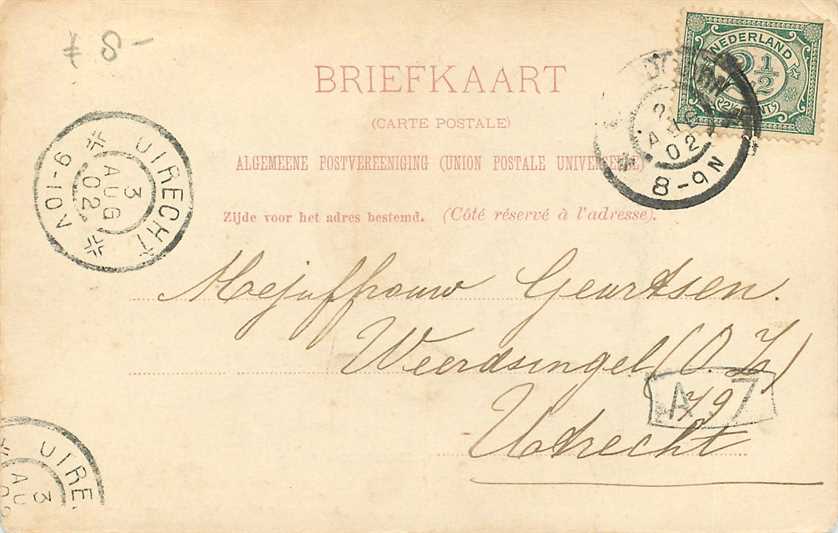 ƒ 8 -
NEDERLAND
2½
BRIEFKAART
(CARTE POSTALE)
ALGEMEENE POSTVEREENIGING (UNION POSTALE UNIVERSELLE)
Zijde voor het adres bestemd. (Côté réservé à l'adresse).
AUG
02
8-9N
UTRECHT
3
AUG
02
9-10V
Mejuffrouw Geurtsen.
Weerdsingel (O.Z.)
79
A 7
Utrecht
UTRE
3
AU